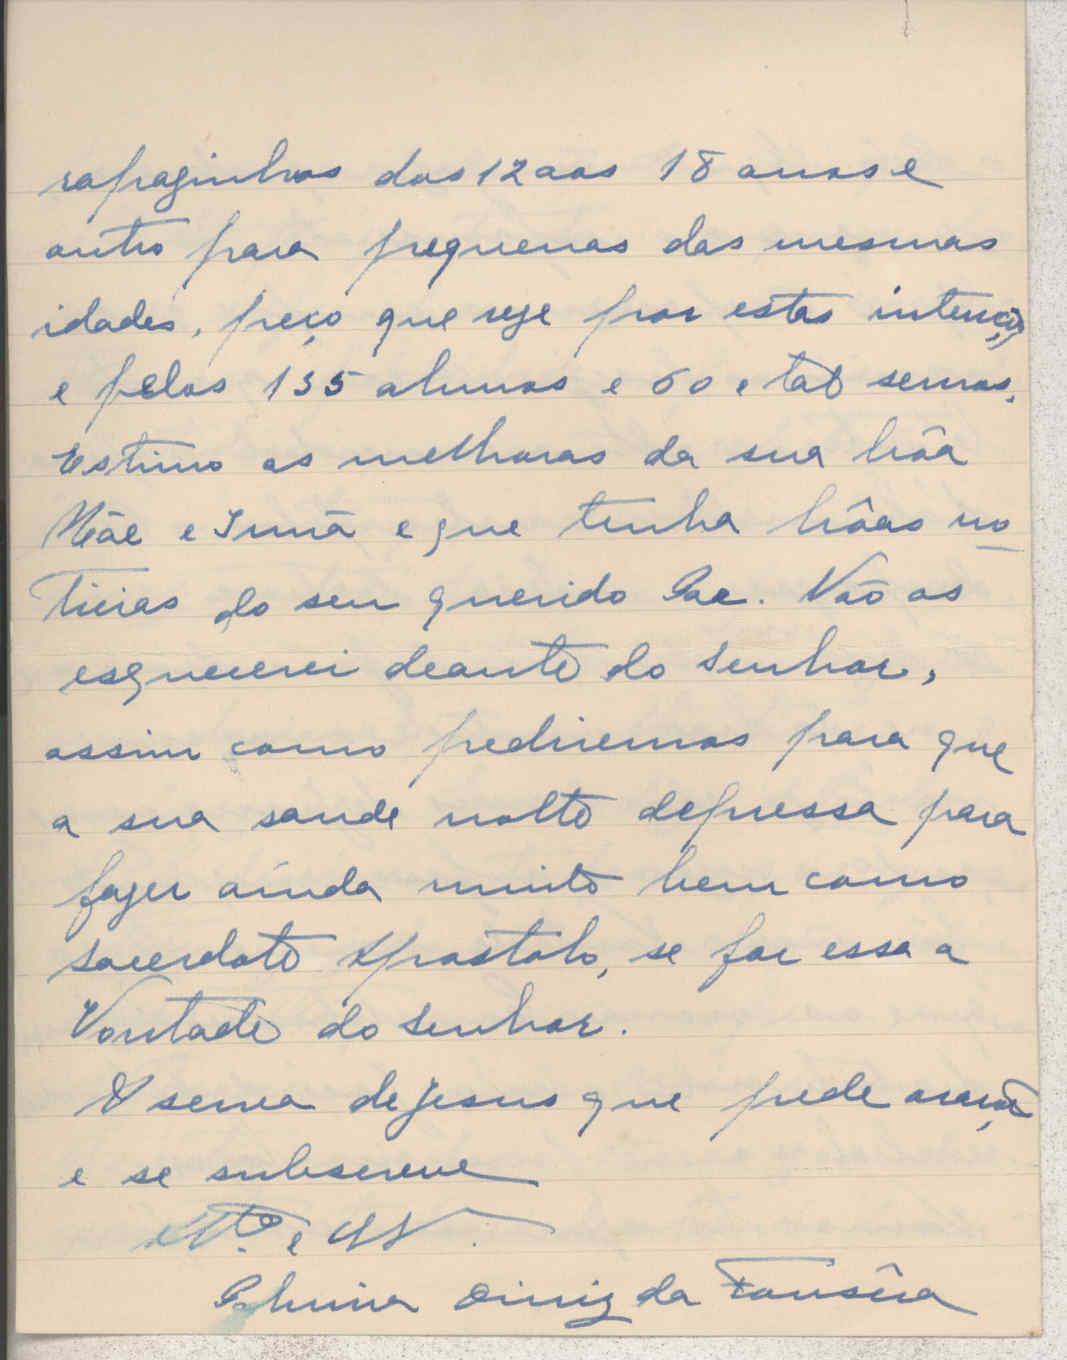 rapaginhos dos 12 aos 18 anos e
outro para pequenas das mesmas
idades, peço que reze por estas intenções
e pelos 135 alunos e 60 e tal servas.
Estimo as melhoras da sua bôa
Mãe e Irmã e que tenha bôas no
ticias do seu querido Pae. Não os
esquecerei deante do Senhor,
assim como pediremos para que
a sua saude volte depressa para
fazer ainda muito bem como
sacerdote Apostolo, se for essa a
Vontade do Senhor.
A serva de Jesus que pede oração
e se subscreve
Diniz da Fonsêca